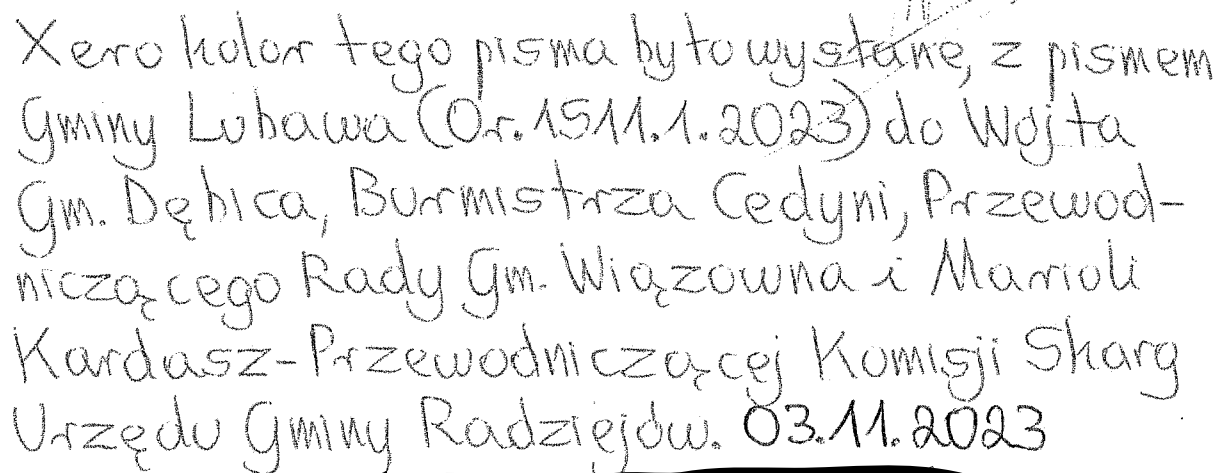 Xero kolor tego pisma było wysłane, z pismem
Gminy Lubawa (Or.1511.1.2023) do Wójta
Gm. Dębica, Burmistrza Cedyni, Przewod-
niczącego Rady Gm. Wiązowna i Marioli
Kardasz-Przewodniczącej Komisji Skarg
Urzędu Gminy Radziejów. 03.11.2023